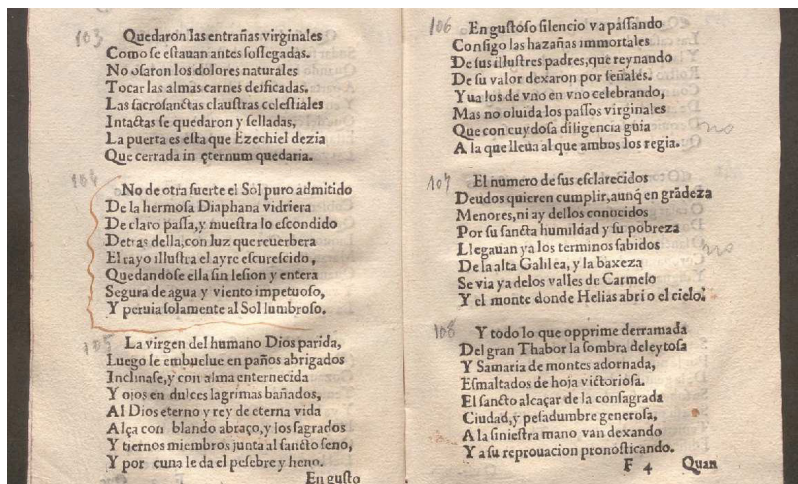 103
Quedaron las entrañas virginales
Como se eſtauan antes ſoſſegadas.
No oſaron los dolores naturales
Tocar las almas carnes deificadas.
Las ſacroſanctas clauſtras celeſtiales
Intactas ſe quedaron y ſelladas,
La puerta es eſta que Ezechiel dezia
Que cerrada in ęternum quedaria.
104
No de otra ſuerte el Sol puro admitido
De la hermoſa Diaphana vidriera
De claro paſſa, y mueſtra lo eſcondido
Detras della, con luz que reuerbera
El rayo illuſtra el ayre eſcureſcido,
Quedandoſe ella ſin leſion y entera
Segura de agua y viento impetuoſo,
Y peruia ſolamente al Sol lumbroſo.
105
La virgen del humano Dios parida,
Luego ſe embuelue en paños abrigados
Inclinaſe, y con alma enternecida
Y ojos en dulces lagrimas bañados,
Al Dios eterno y rey de eterna vida
Alça con blando abraço, y los ſagrados
Y tiernos miembros junta al ſancto ſeno,
Y por cuna le da el peſebre y heno.
En guſto
106
En guſtoſo ſilencio va paſſando
Conſigo las hazañas immortales
De ſus illuſtres padres, que reynando
De ſu valor dexaron por ſeñales.
Yua los de vno en vno celebrando,
Mas no oluida los paſſos virginales
Que con cuydoſa diligencia guia no
A la que lleua al que ambos los regia.
107
El numero de ſus eſclarecidos
Deudos quieren cumplir, aunq̃ en grãdeza
Menores, ni ay dellos conocidos
Por ſu ſancta humildad y ſu pobreza
Llegauan ya los terminos ſabidos no
De la alta Galilea, y la baxeza
Se via ya delos valles de Carmelo
Y el monte donde Helias abrio el cielo.
108
Y todo lo que opprime derramada
Del gran Thabor la ſombra deleytoſa
Y Samaria de montes adornada,
Eſmaltados de hoja victorioſa.
El ſancto alcaçar de la conſagrada
Ciudad, y peſadumbre generoſa,
A la ſinieſtra mano van dexando
Y a ſu reprouacion pronoſticando.
F 4 Quan